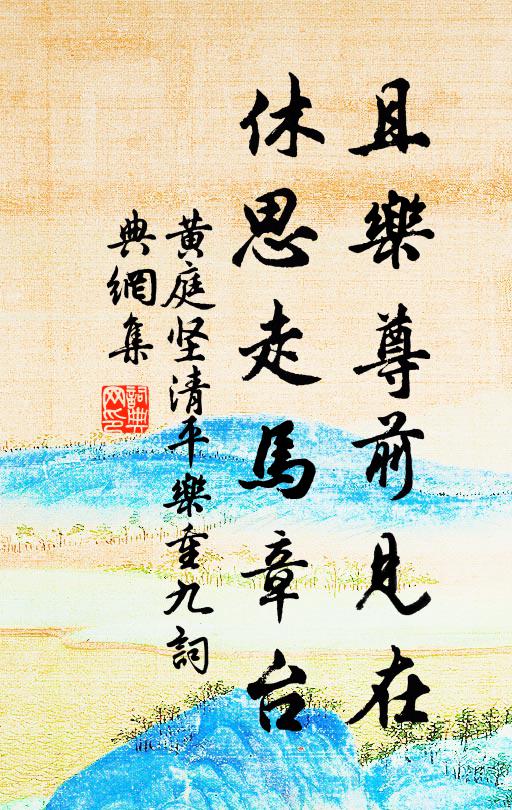 且樂尊前見在
休思走馬章台
黃庭坚清平樂重九詞
典網集
詞典
网印